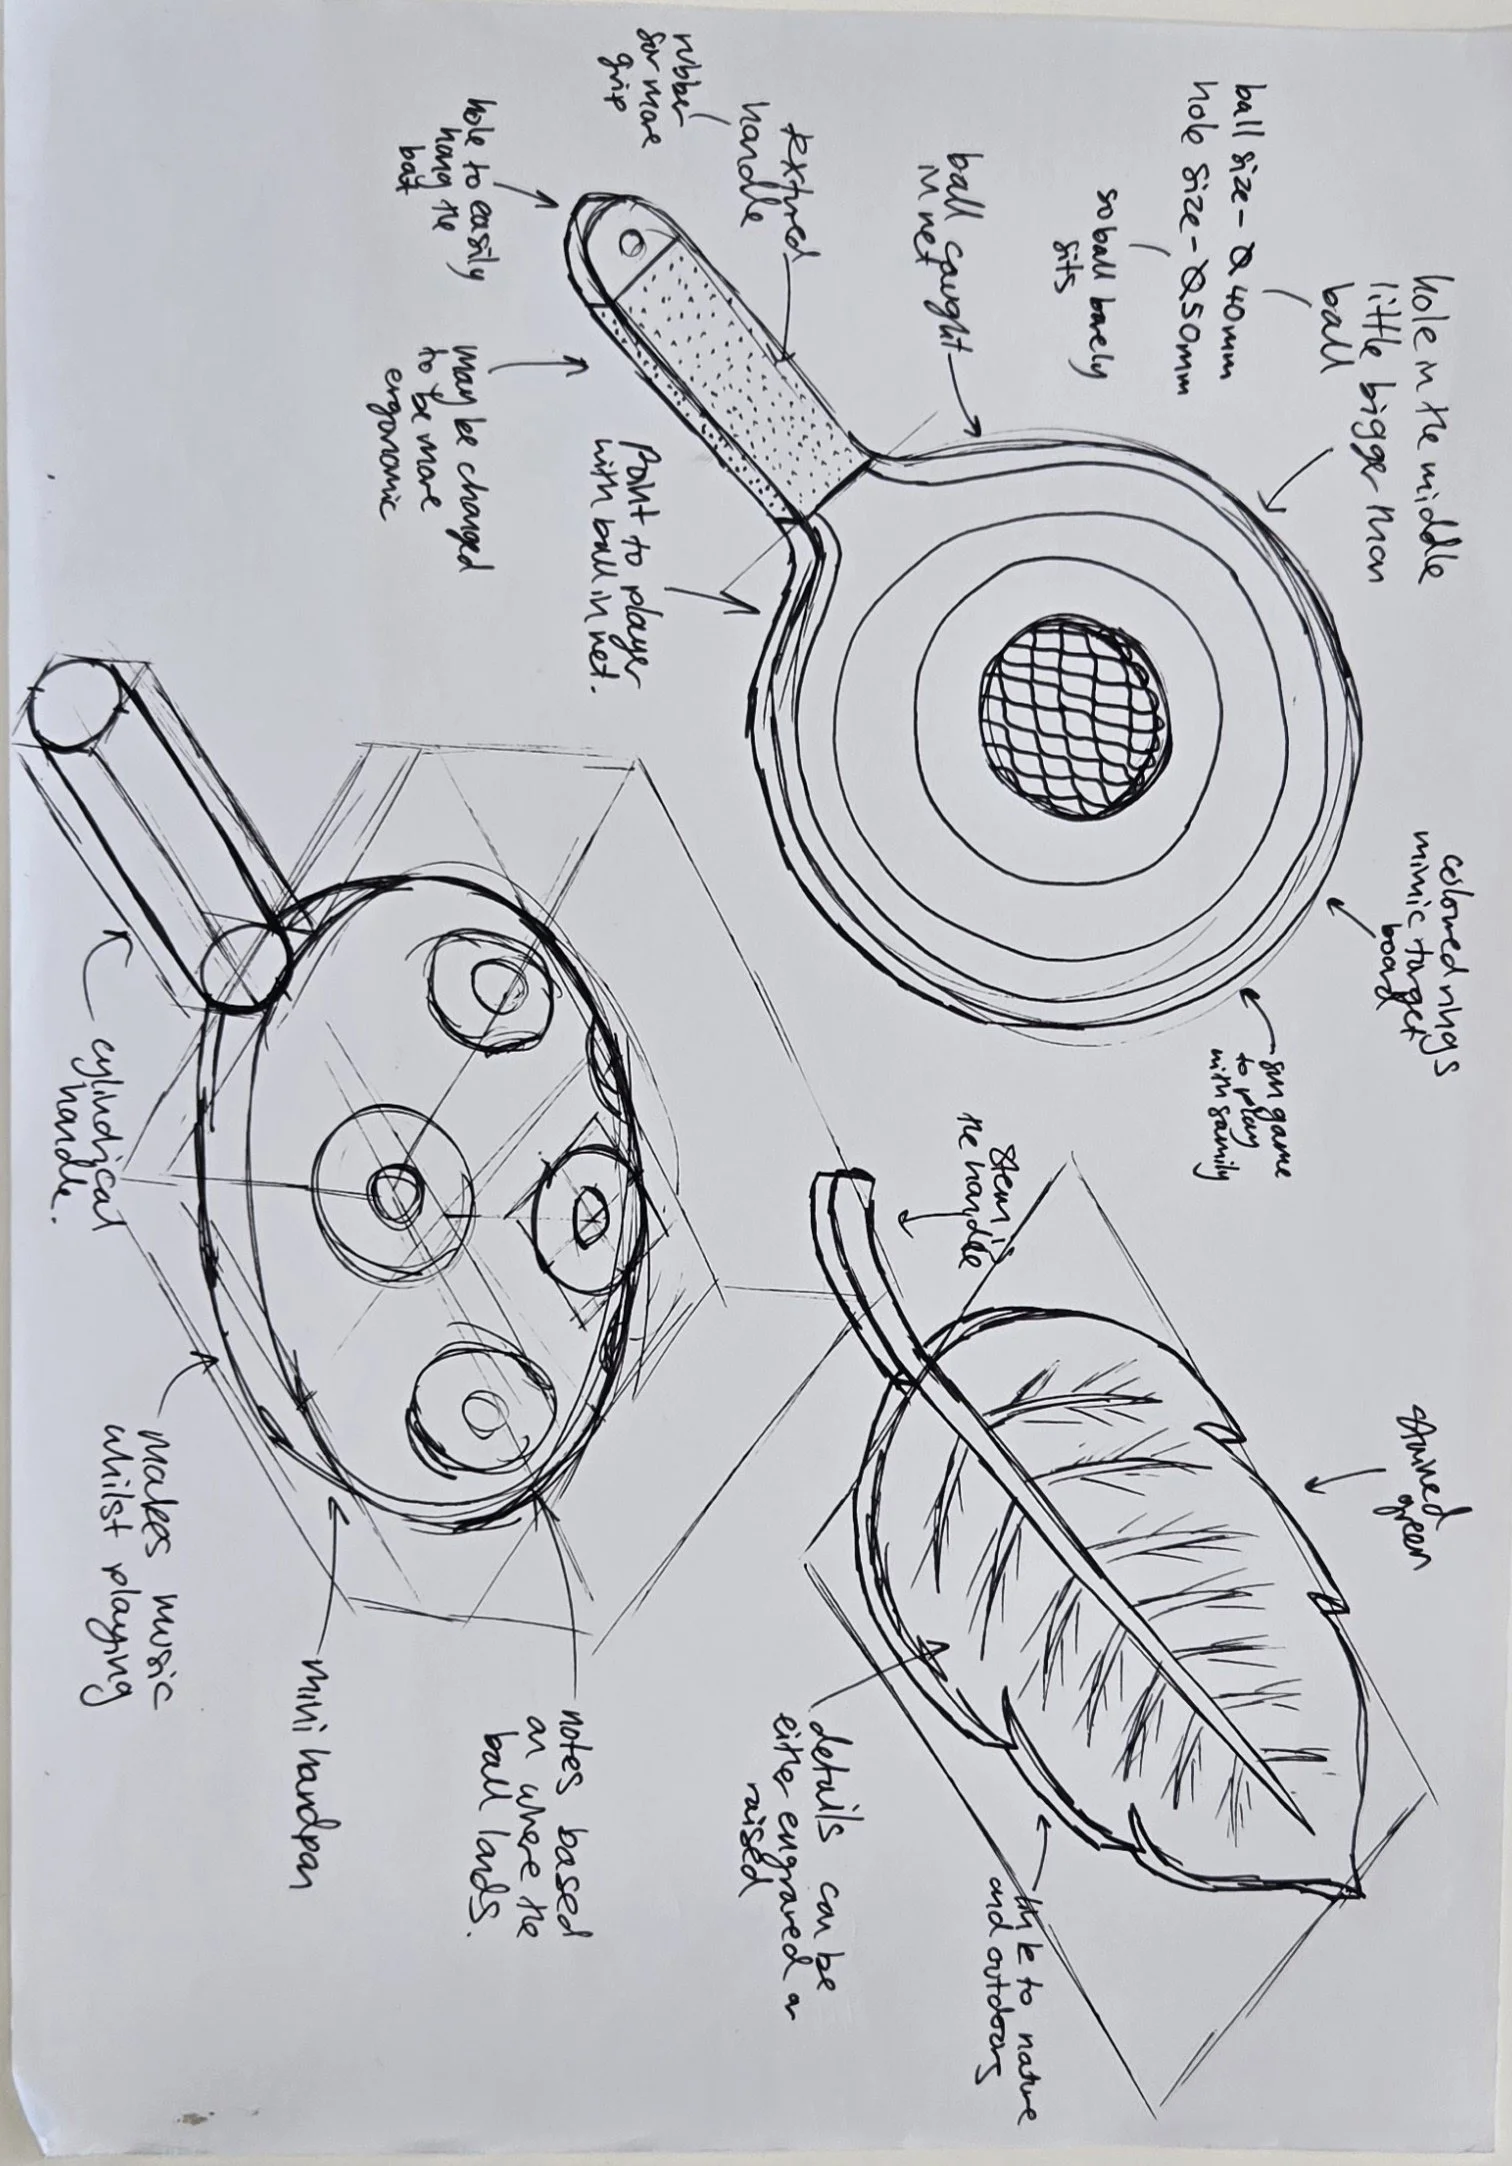 hole in the middle
little bigger than
ball
ball size - Ø 40mm
hole size - Ø 50mm
so ball barely
sits
ball caught
in net
textured
handle
rubber
for more
grip
hole to easily
hang the
bat
may be changed
to be more
ergonomic
Point to player
with ball in net.
coloured rings
mimic target
board
fun game
to play
with family
stem is
the handle
stained
green
link to nature
and outdoors
details can be
either engraved or
raised
notes based
on where the
ball lands.
mini handpan
makes music
whilst playing
cylindical
handle.